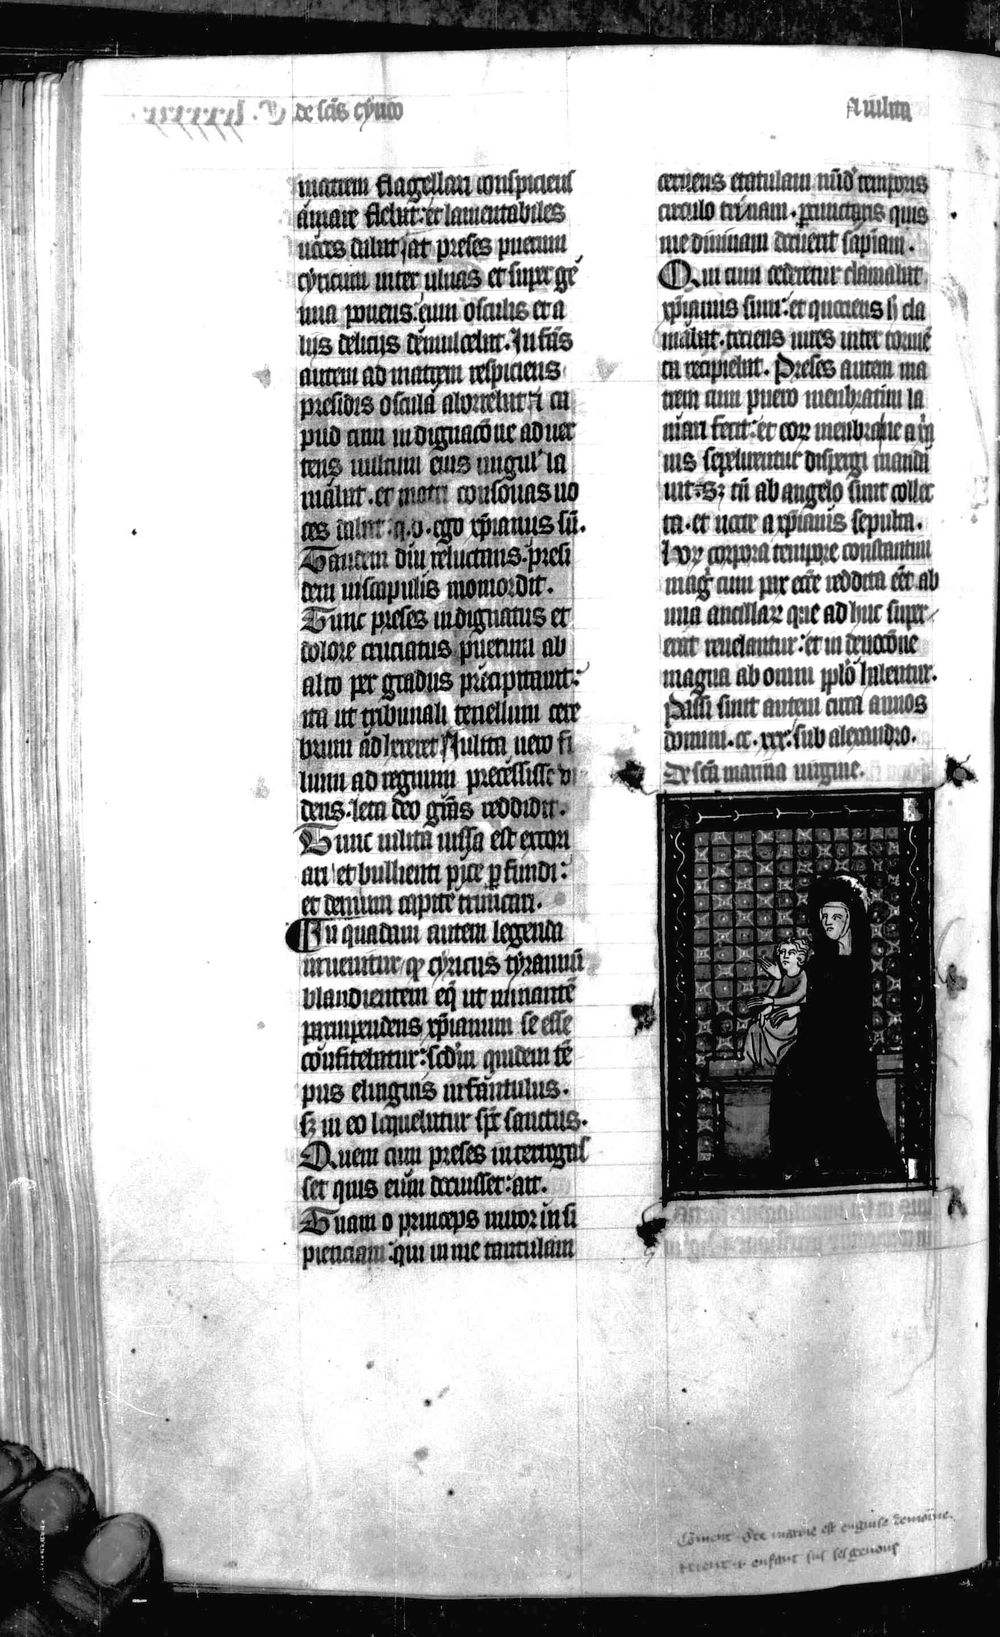 de scīs cyrico
Et iulitta
matrem flagellari conspiciens
amare flebat: et lamentabiles
uoces dabat. at preses puerum
cyricum inter ulnas et super ge
nua ponens: eum osculis et a
liis deliciis demulcebat. Infās
autem ad matrem respiciens
presidis oscula abhorrebat et ca
pud cum indignacōne aduer
tens uultum eius unguib' la
niabat. et matri consonas uo
ces dabat. q. d. ego xp̄ianus sū.
Tandem diu reluctans. presi
dem in scapulis momordit.
Tunc preses indignatus et
dolore cruciatus puerum ab
alto per gradus precipitauit:
ita ut tribunali tenellum cere
brum adhereret Iulitta uero fi
lium ad regnum precessisse vi
dens. leta deo grās reddidit.
Tunc iulitta iussa est excori
ari et bullienti pice ꝑfundi:
et demum capite truncari.
In quadam autem legenda
inuenitur qꝫ cyricus tyrannū
blandientem eq̄ ut minantē
paruipendens xp̄ianum se esse
confitebatur: sed in quidem tē
pus elinguis infantulus.
sꝫ in eo loquebatur sp̄c sanctus.
Quem cum preses interrogas
set quis eum docuisset: ait.
Tuam o princeps miror insi
pienciam: qui in me tantulam
cernens etatulam nūd' temporis
circulo trinam. percunctaris quis
me diuinam docuerit sapiam.
Qui cum cederetur clamabat
xp̄ianus sum: et quociens h̄ cla
mabat. tociens uires inter tormē
ta recipiebat. Preses autem ma
trem cum puero membratim la
niari fecit: et eoꝝ membra ne a xp̄ia
nis sepelirentur dispergi manda
uit. Sꝫ tn̄ ab angelo sunt collec
ta. et nocte a xp̄ianis sepulta.
hoꝝ corpora tempore constantini
mag̃ cum pax ecc̄e reddita ēet ab
una ancillaꝝ que adhuc super
erat reuelantur: et in deuocōne
magna ab omni pp̄lo habentur.
Passi sunt autem circa annos
domini. cc. xxx. sub alexandro.
De scā marina uirgine.
Cōment ste marine est enguise demoine.
tient .i. enfant sus ses genous